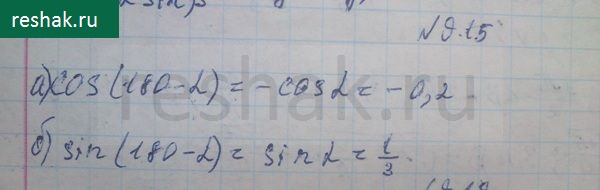 reshak.ru
№9.15
а) cos(180-α) = -cosα = -0,2
reshak.ru
б) sin(180-α) = sinα = 1/3.